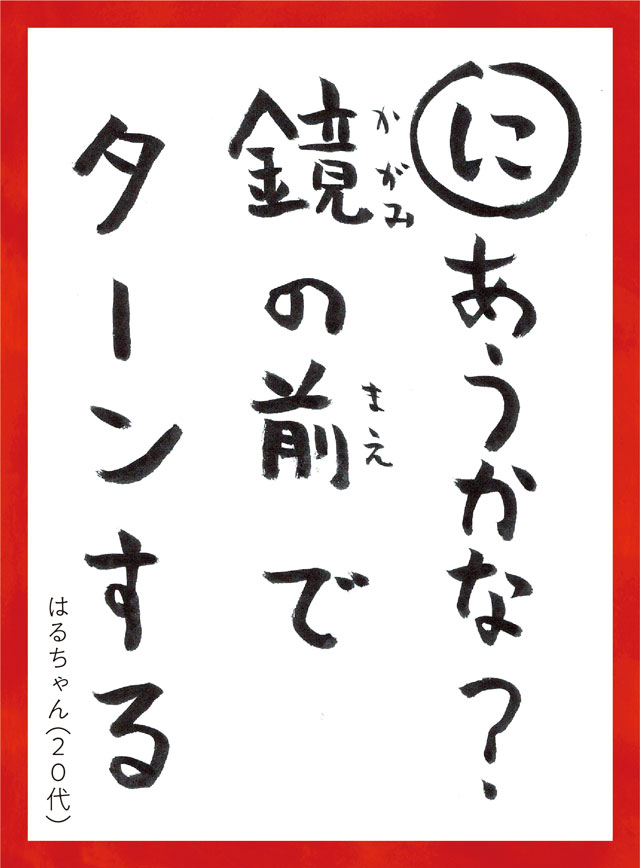 にあうかな？
鏡の前で
かがみ
まえ
ターンする
はるちゃん(20代)